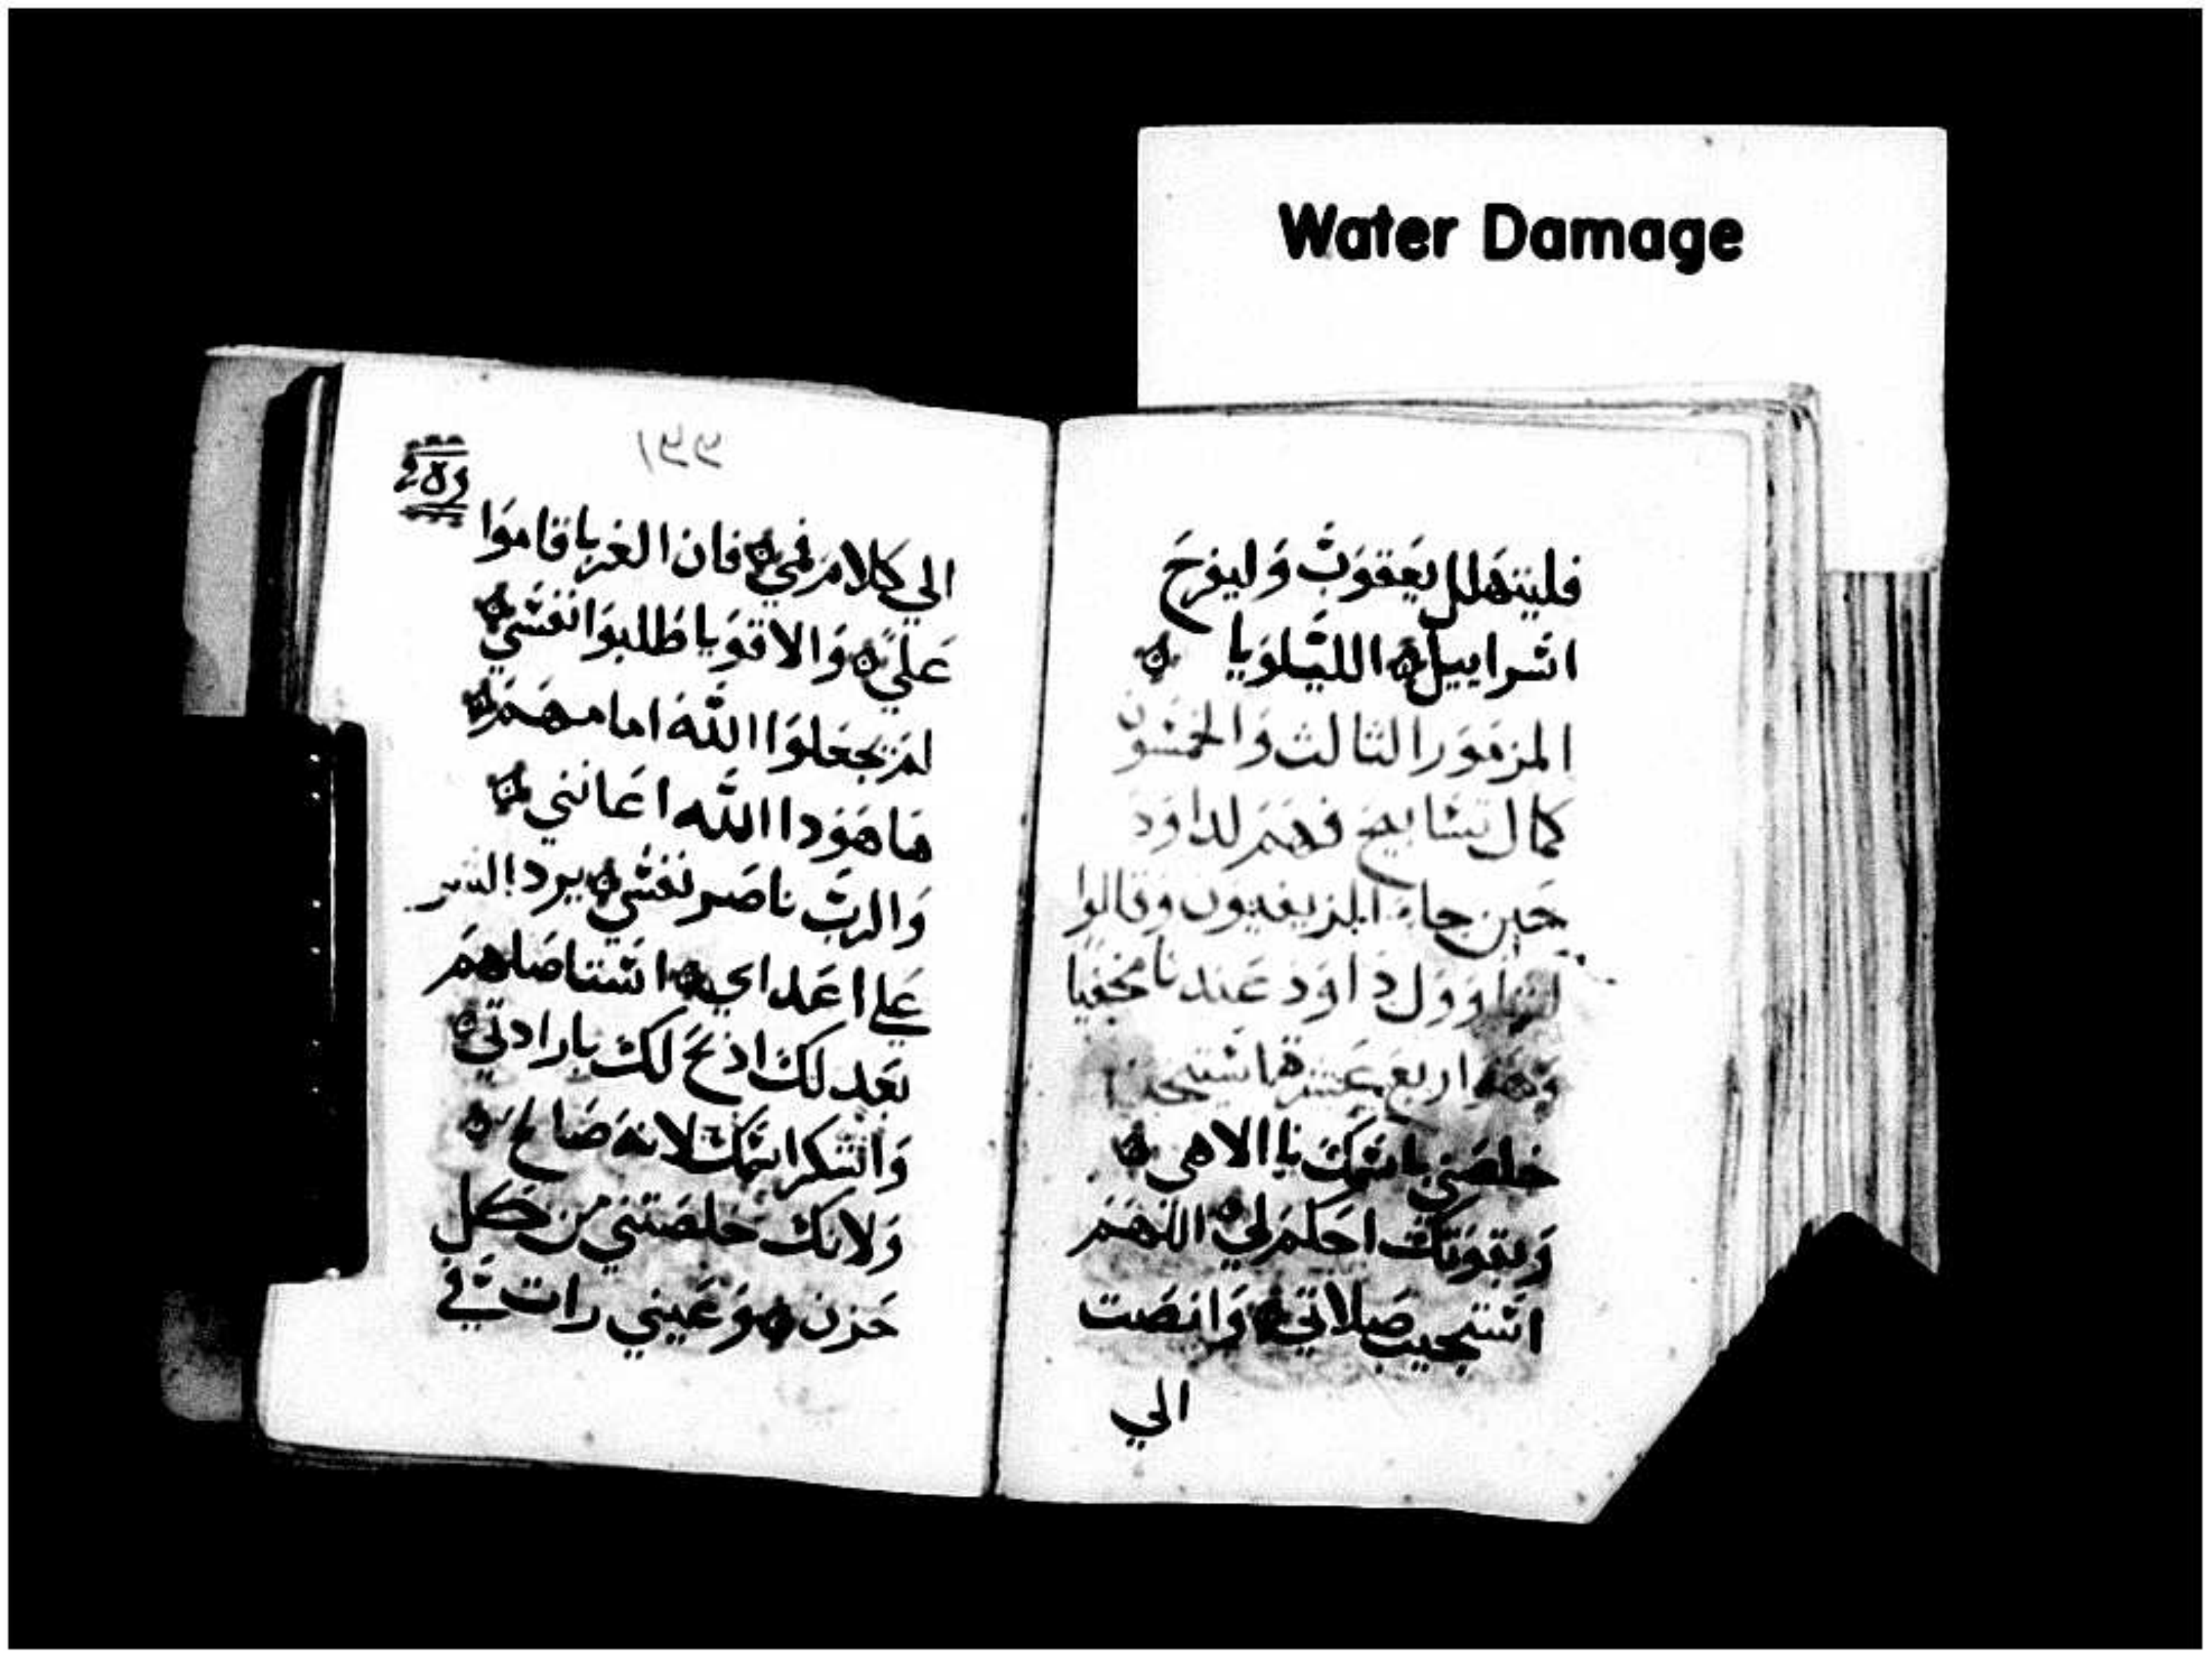 Water Damage
فليتهلل يعقوب وليفرح
اسراييل الليلويا
المزمور الثالث والخمسون
كمال تسابيح فهم لداود
حين جاء الزيفيون وقالوا
داود عندنا مخفيا
اربع عشر
خلصني باسمك يا الاهي
وبقوتك احكم لي اللهم
استجيب صلاتي وانصت
الي
١٩٩
الي كلام فمي فان الغربا قاموا
علي والاقويا طلبوا نفسي
لم يجعلوا الله امامهم
ها هودا الله اعانني
والرب ناصر نفسي يرد الشر
علي اعداي استاصلهم
بعدلك اذبح لك بارادتي
واشكر اسمك لانه صالح
ولانك خلصتني من كل
حزن وعيني رات في